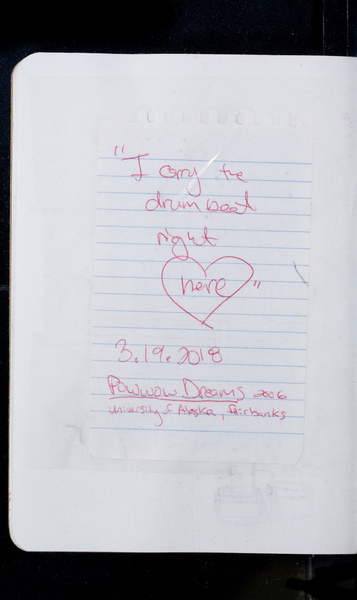 "I carry the
drum beat
right
here"
3.19.2018
Powwow Dreams 2006
University of Alaska, Fairbanks